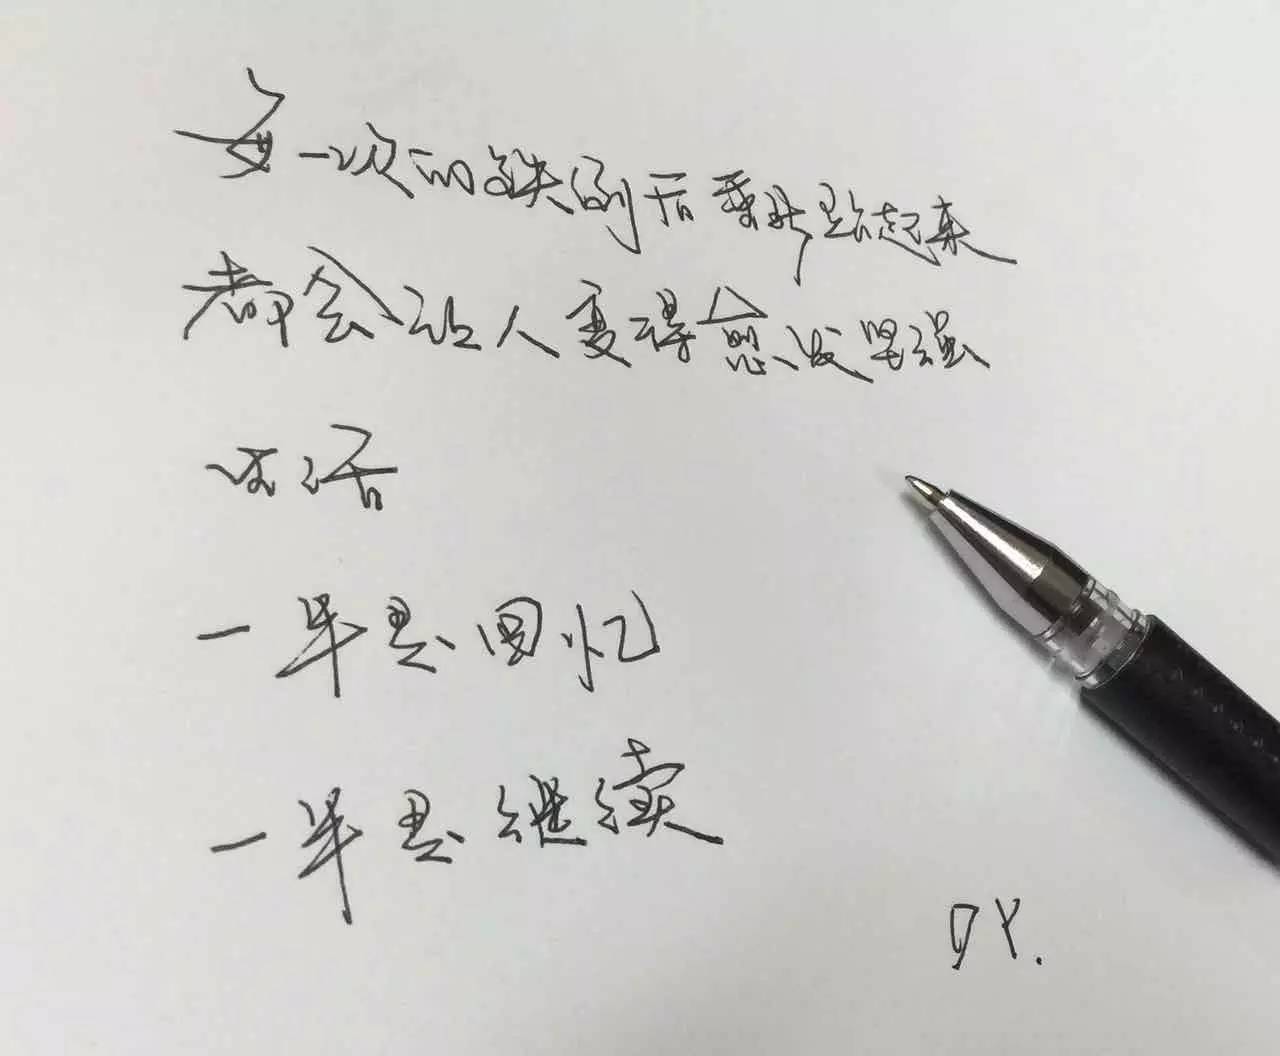 每一次的跌倒后重新站起来
都会让人变得愈发坚强
生活
一半是回忆
一半是继续
DY.